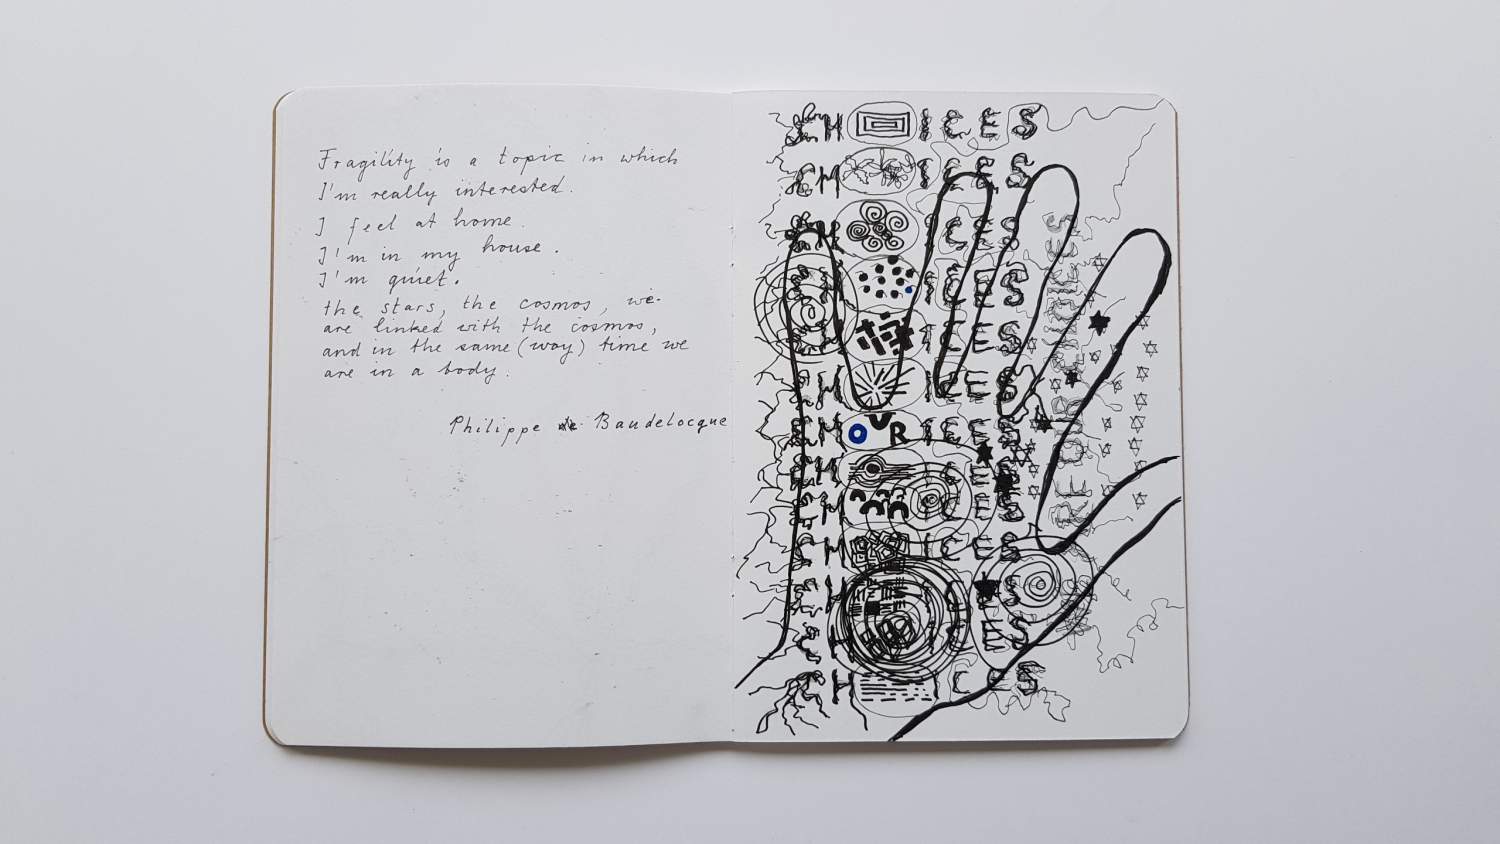 Fragility is a topic in which
I'm really interested.
I feel at home.
I'm in my house.
I'm quiet.
the stars, the cosmos, we
are linked with the cosmos,
and in the same (way) time we
are in a body.
Philippe Baudelocque
CH ICES
CH ICES
CH ICES
CH ICES
CH ICES
CH ICES
CH OUR ICES
CH ICES
CH ICES
CH ICES
CH ICES
CH CES
CH CES